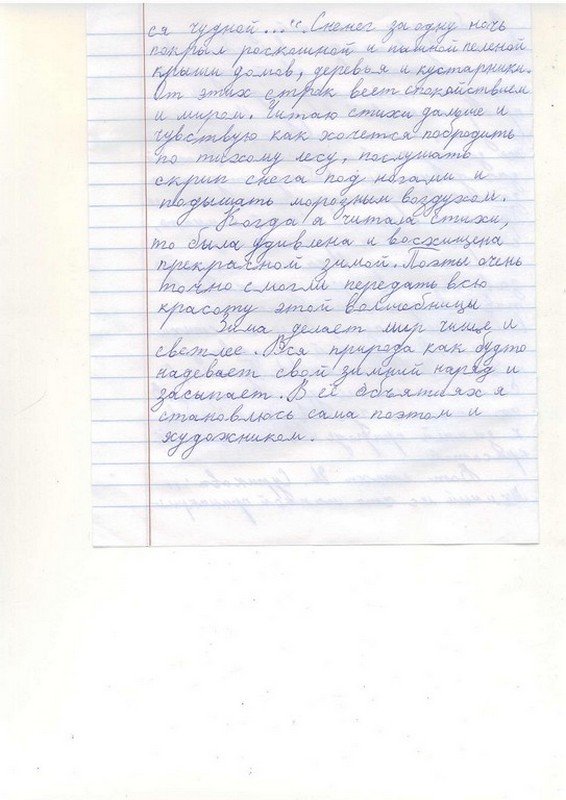 ся чудной...". Сненег за одну ночь
покрыл роскошной и пышной пеленой
крыши домов, деревья и кустарники.
От этих строк веет спокойствием
и миром. Читаю стихи дальше и
чувствую как хочется побродить
по тихому лесу, послушать
скрип снега под ногами и
подышать морозным воздухом.
Когда а читала стихи,
то была удивлена и восхищена
прекрасной зимой. Поэты очень
точно смогли передать всю
красоту этой волшебницы
Зима делает мир чище и
светлее. Вся природа как будто
надевает свой зимний наряд и
засыпает. В её объятиях я
становлюсь сама поэтом и
художником.